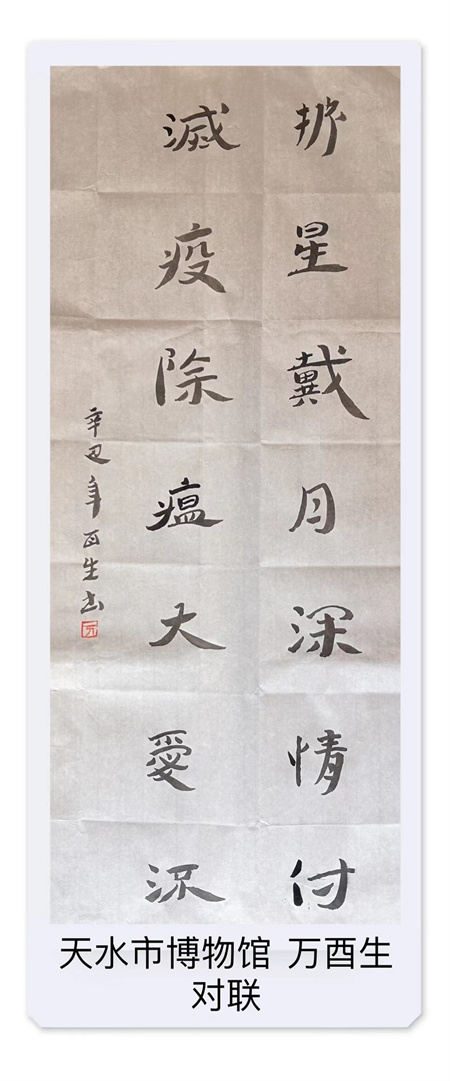 披星戴月深情付
滅疫除瘟大愛
辛丑年酉生书
天水市博物馆 万酉生
对联